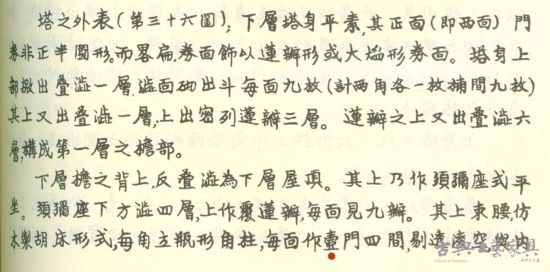 塔之外表(第三十六圖),下層塔身平素,其正面(即西面)門
券非正半圓形,而畧扁券面飾以蓮瓣形或火焰形券面。塔身上
部出叠澁一層,澁面砌出斗每面九枚(計兩角各一枚補間九枚)
其上又出叠澁一層,上出密列蓮瓣三層。蓮瓣之上又出叠澁六
層,構成第一層之檐部。
下層檐之背上,反叠澁為下層屋頂。其上乃作須彌座式平
坐。須彌座下方澁四層,上作覆蓮瓣,每面見九瓣。其上束腰仿
木製胡床形式,每角立瓶形角柱,每面作壼門四間,剔透空内